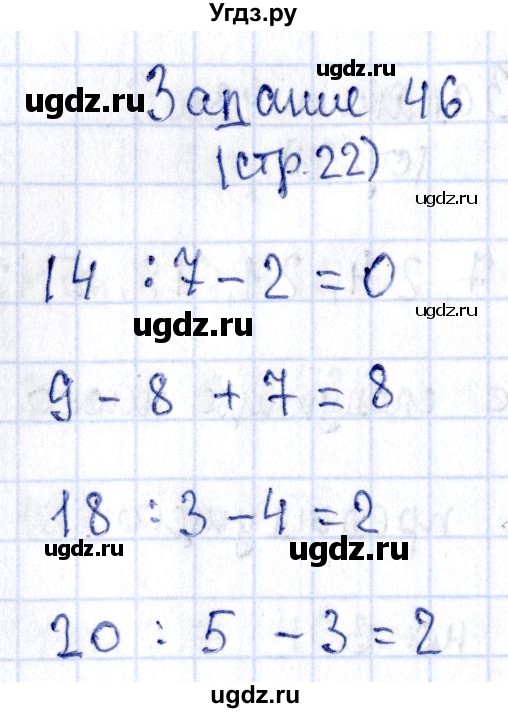 Угдз.ру
Задание 46
ugdz.ru ugdz.ru
(стр.22)
ugdz.ru
14 : 7 - 2 = 0
ugdz.ru ugdz.ru
9 - 8 + 7 = 8
18 : 3 - 4 = 2
ugdz.ru ugdz.ru
20 : 5 - 3 = 2
ugdz.ru